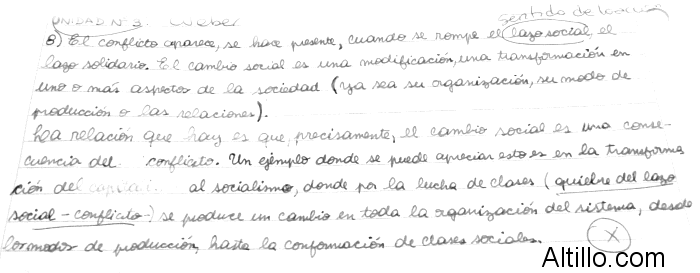 UNIDAD Nº 3. Weber
sentido de la acción
8) El conflicto aparece, se hace presente, cuando se rompe el lazo social, el
lazo solidario. El cambio social es una modificación, una transformación en
uno o más aspectos de la sociedad (ya sea su organización, su modo de
producción o las relaciones).
La relación que hay es que, precisamente, el cambio social es una conse-
cuencia del conflicto. Un ejemplo donde se puede apreciar esto es en la transforma
ción del capital. al socialismo, donde por la lucha de clases (quiebre del lazo
social - conflicto -) se produce un cambio en toda la organización del sistema, desde
los modos de producción, hasta la conformación de clases sociales.
X
Altillo.com